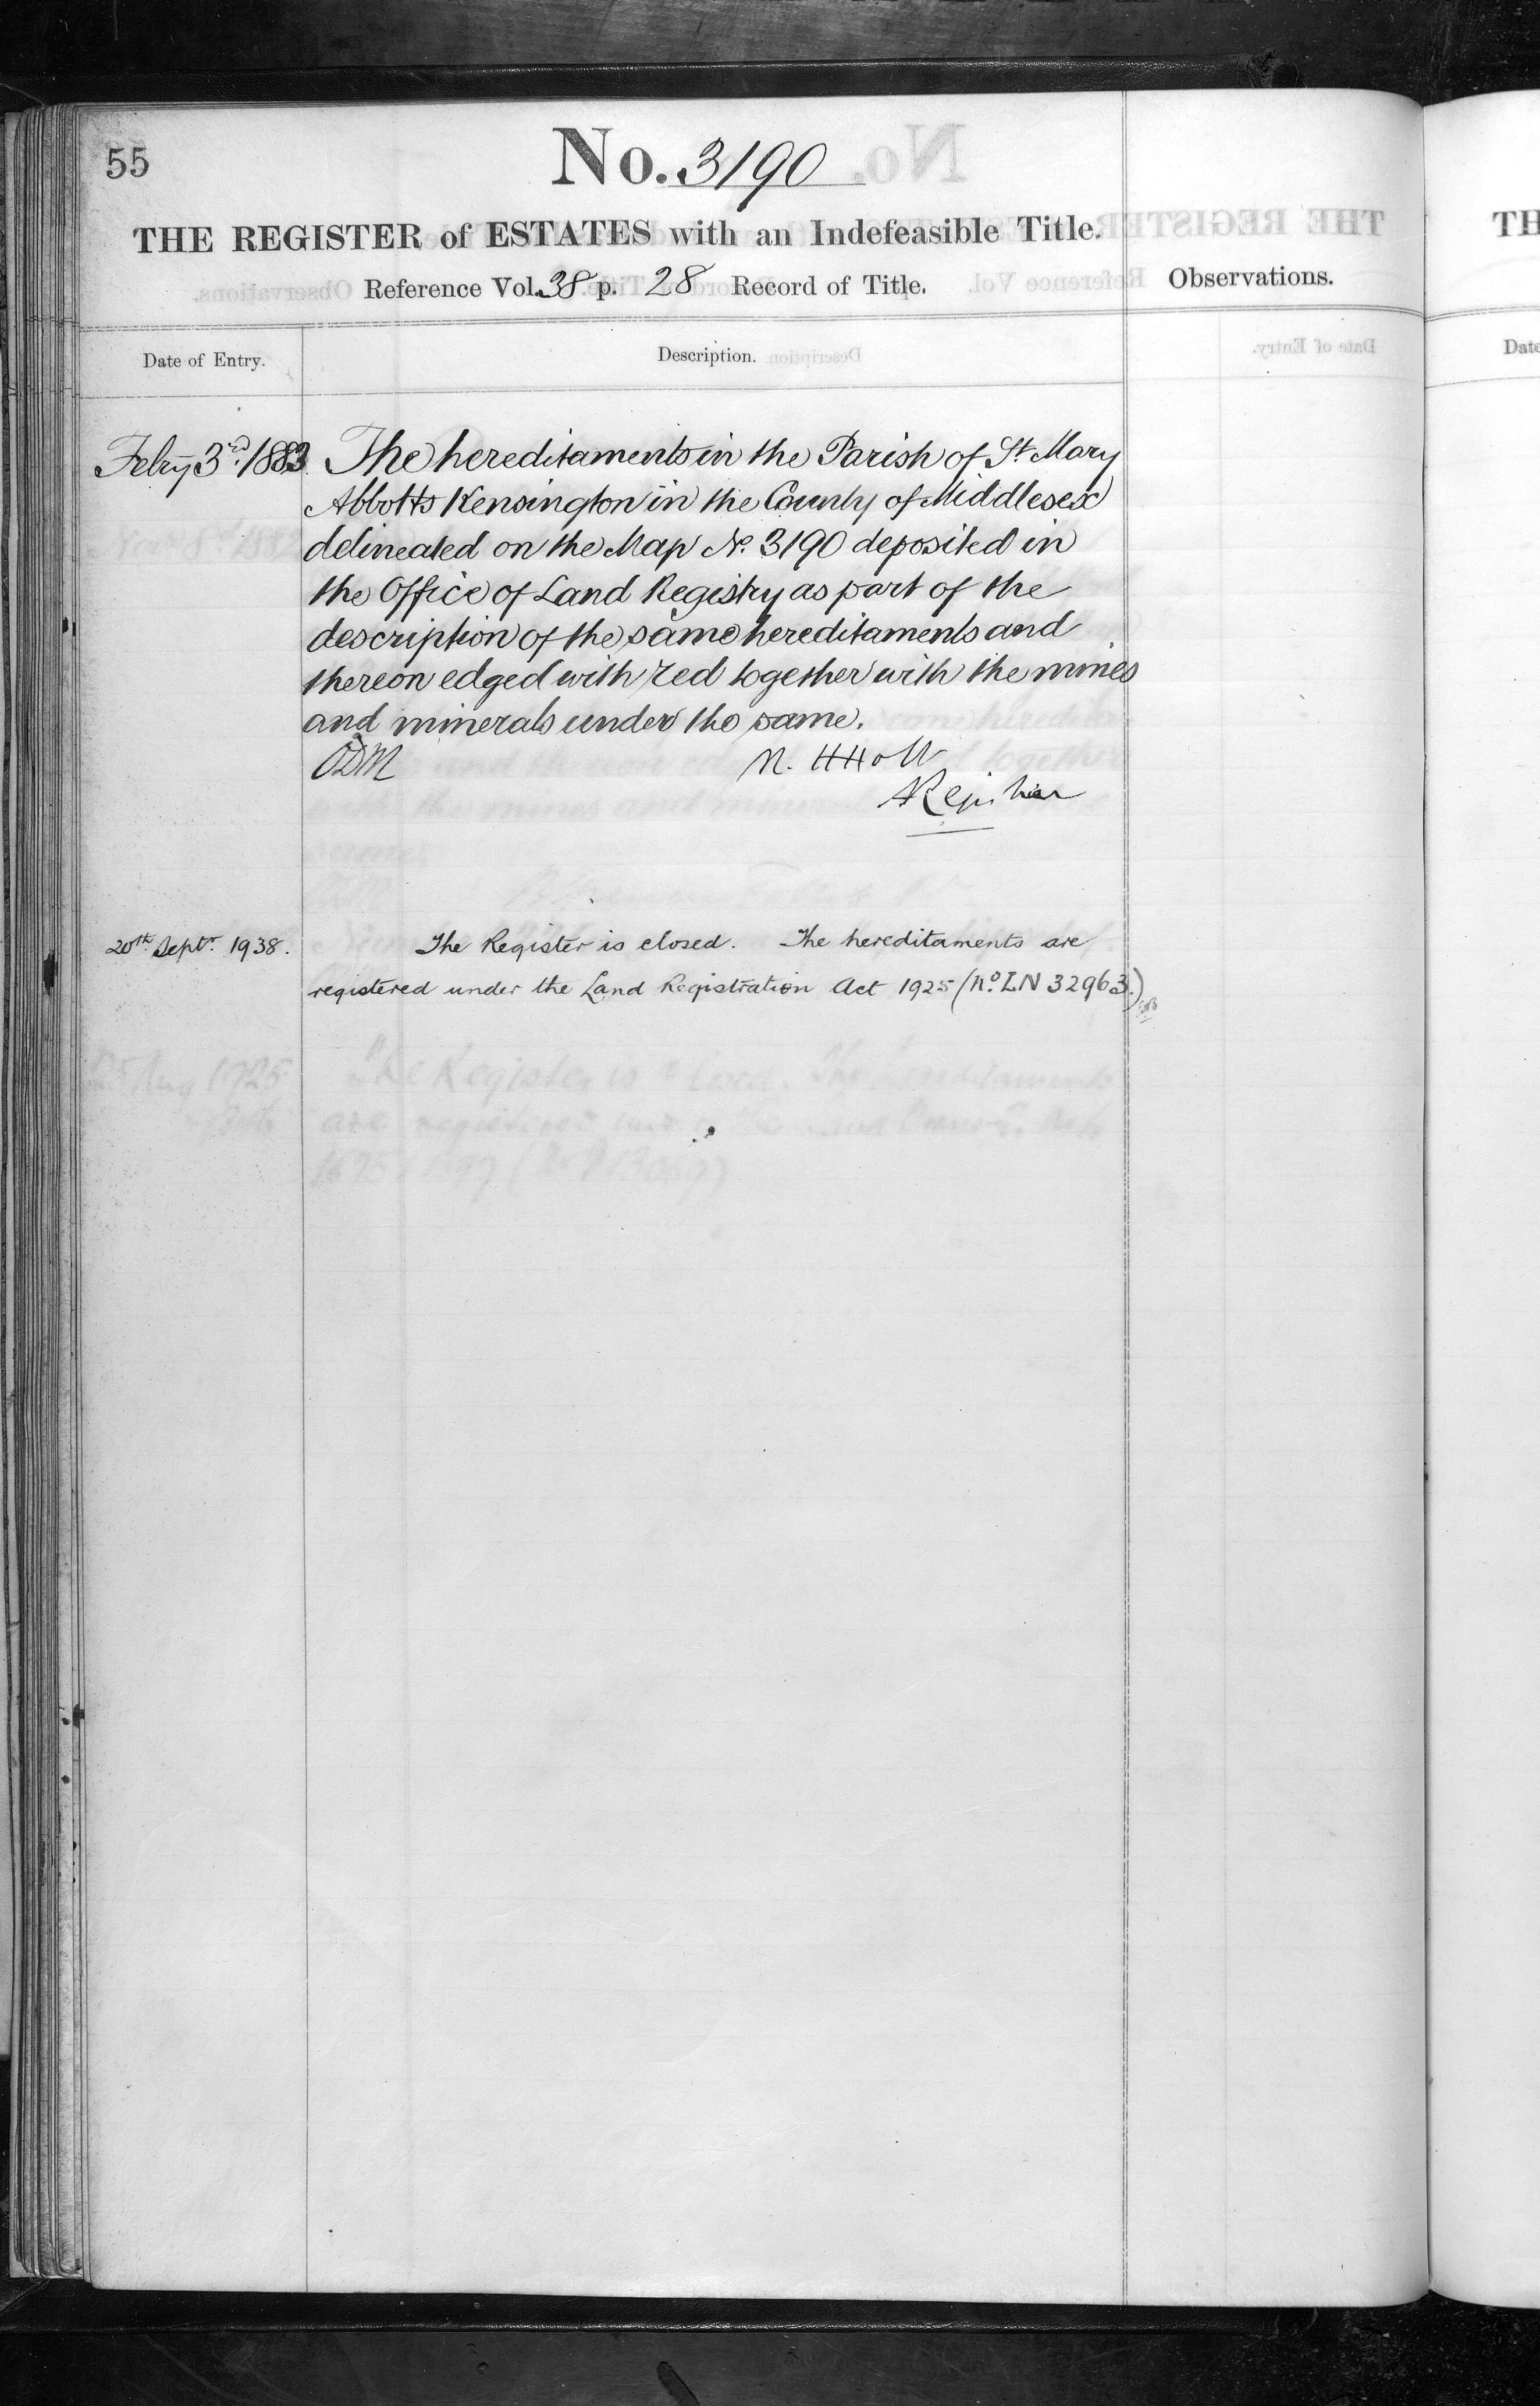 55
No. 3190
THE REGISTER of ESTATES with an Indefeasible Title.
Reference Vol. 38 p. 28 Record of Title.
Observations.
Date of Entry.
Description.
Febry 3rd. 1883. The hereditaments in the Parish of St. Mary
Abbotts Kensington in the County of Middlesex
delineated on the Map No. 3190 deposited in
the Office of Land Registry as part of the
description of the same hereditaments and
thereon edged with red together with the mines
and minerals under the same.
ODM
Registrar
20th Septr. 1938. The Register is closed. The hereditaments are
registered under the Land Registration Act 1925 (No. LN 32963.)
TH
Date